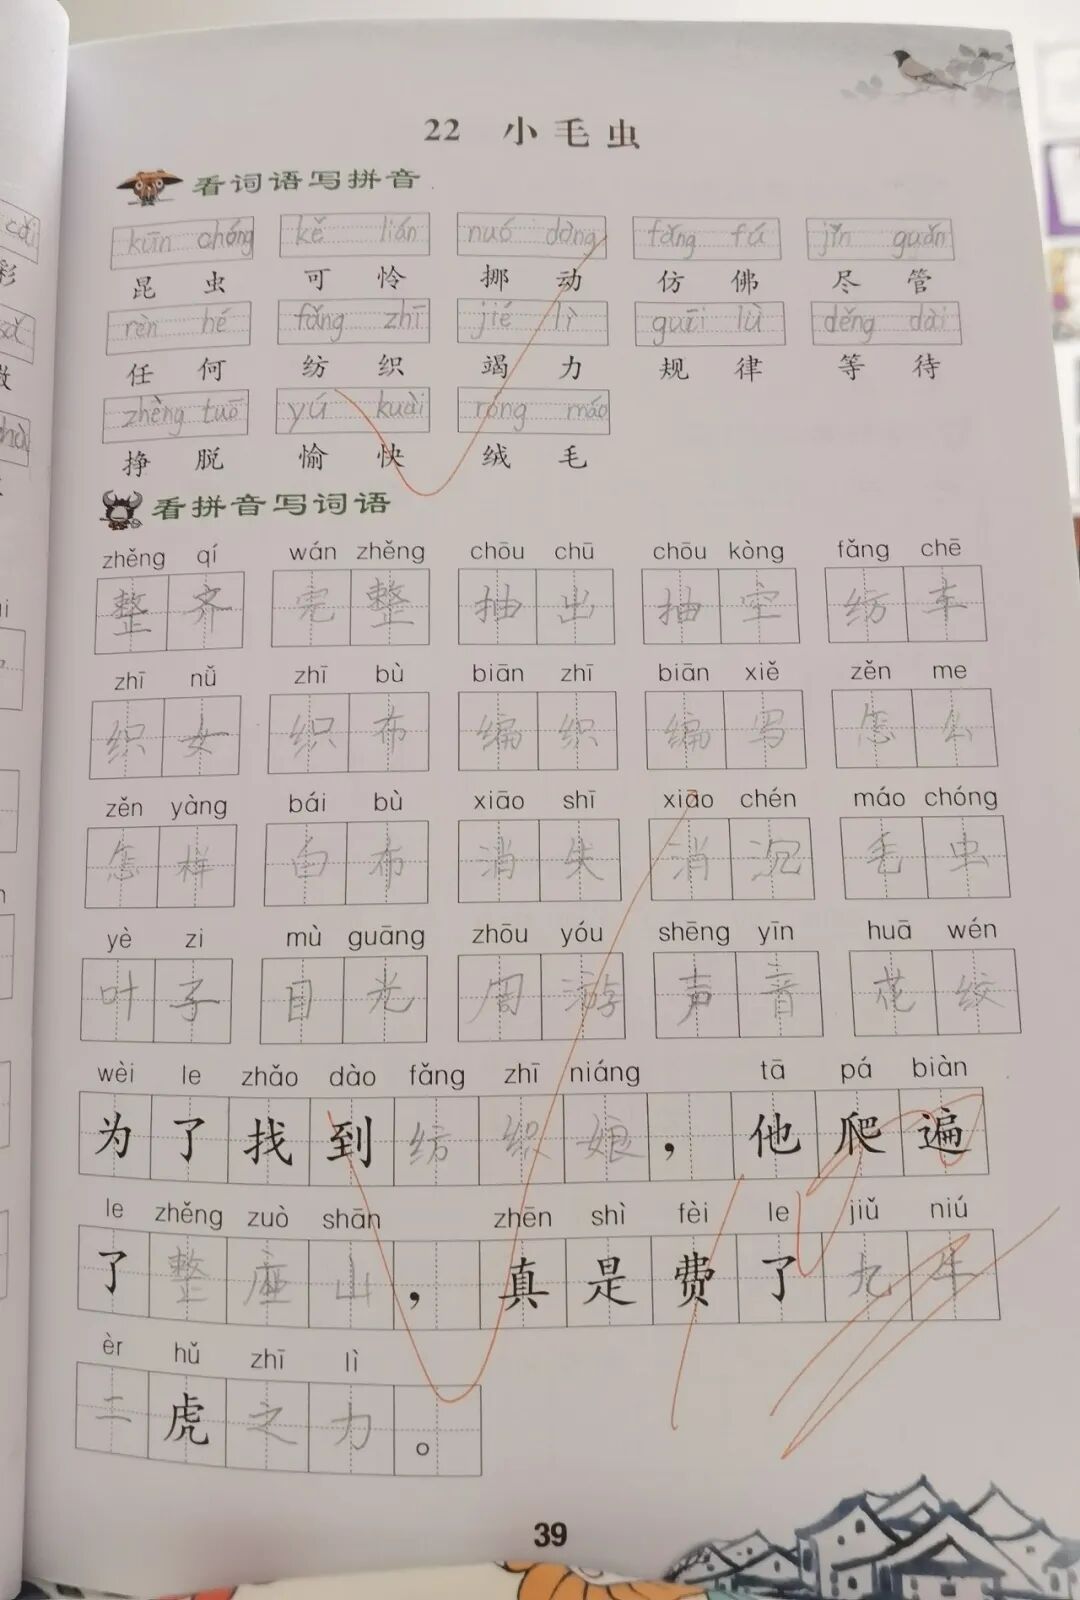 22 小毛虫
看词语写拼音
kūn chóng kě lián nuó dòng fǎng fú jǐn guǎn
昆 虫 可 怜 挪 动 仿 佛 尽 管
rèn hé fǎng zhī jié lì guī lǜ děng dài
任 何 纺 织 竭 力 规 律 等 待
zhèng tuō yú kuài róng máo
挣 脱 愉 快 绒 毛
看拼音写词语
zhěng qí wán zhěng chōu chū chōu kòng fǎng chē
整 齐 完 整 抽 出 抽 空 纺 车
zhī nǚ zhī bù biān zhī biān xiě zěn me
织 女 织 布 编 织 编 写 怎 么
zěn yàng bái bù xiāo shī xiāo chén máo chóng
怎 样 白 布 消 失 消 沉 毛 虫
yè zi mù guāng zhōu yóu shēng yīn huā wén
叶 子 目 光 周 游 声 音 花 纹
wèi le zhǎo dào fǎng zhī niáng tā pá biàn
为了找到纺织娘，他爬遍
le zhěng zuò shān zhēn shì fèi le jiǔ niú
了整座山，真是费了九牛
èr hǔ zhī lì
二虎之力。
39